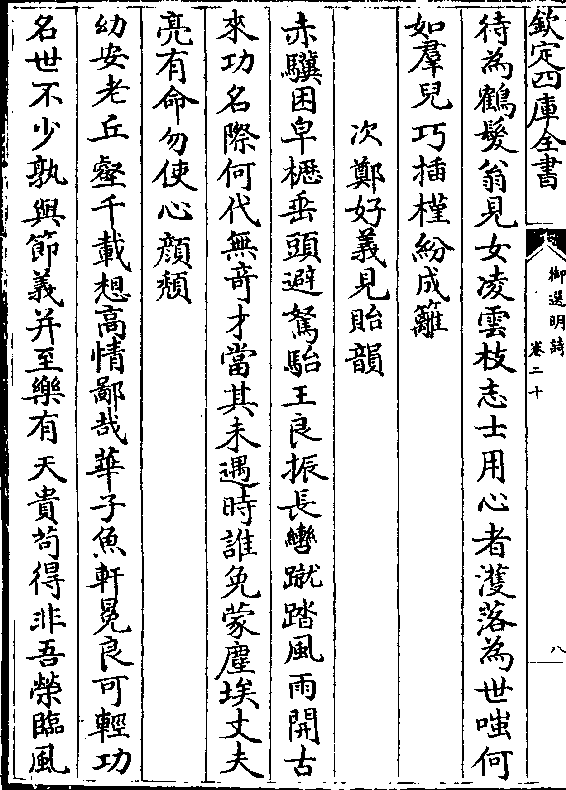 欽定四庫全書
御選明詩
卷二十
八
待為鶴髮翁見女凌雲枝志士用心者濩落為世嗤何
如羣兒巧插槿紛成籬
次鄭好義見貽韻
赤驥困皁櫪垂頭避駑駘王良振長轡蹴踏風雨開古
來功名際何代無竒才當其未遇時誰免蒙塵埃丈夫
亮有命勿使心顔頹
幼安老丘壑千載想高情鄙哉華子魚軒冕良可輕功
名世不少孰與節義并至樂有天貴苟得非吾榮臨風